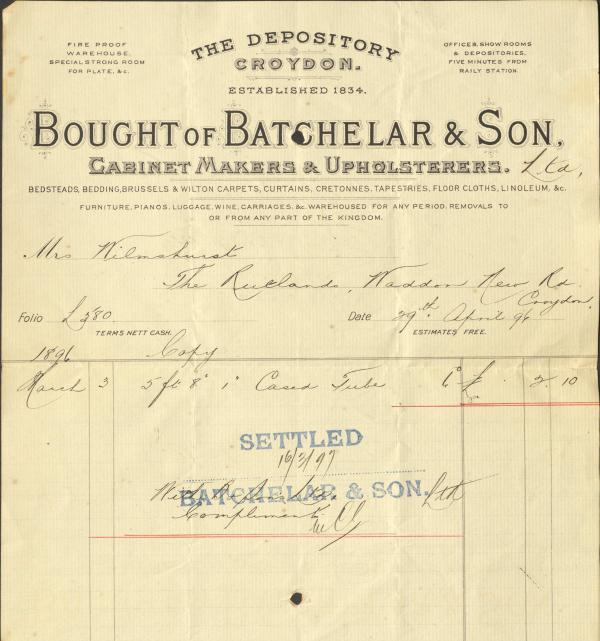 FIRE PROOF
WAREHOUSE.
SPECIAL STRONG ROOM
FOR PLATE, &c.
THE DEPOSITORY
CROYDON.
ESTABLISHED 1834.
OFFICES, SHOW ROOMS
& DEPOSITORIES,
FIVE MINUTES FROM
RAILY STATION.
BOUGHT OF BATCHELAR & SON,
CABINET MAKERS & UPHOLSTERERS. Ltd,
BEDSTEADS, BEDDING, BRUSSELS & WILTON CARPETS, CURTAINS, CRETONNES, TAPESTRIES, FLOOR CLOTHS, LINOLEUM, &c.
FURNITURE, PIANOS, LUGGAGE, WINE, CARRIAGES, &c. WAREHOUSED FOR ANY PERIOD. REMOVALS TO
OR FROM ANY PART OF THE KINGDOM.
Mrs Wilmshurst
The Rutlands, Waddon New Rd
Croydon,
Folio L380 Date 29th April 96
TERMS NETT CASH. ESTIMATES FREE.
1896 Copy
March 3 5 ft 8" 1" Cased Tube 6d £ . 2. 10
SETTLED
16/3/97
BATCHELAR & SON. Ltd
With
Compliments